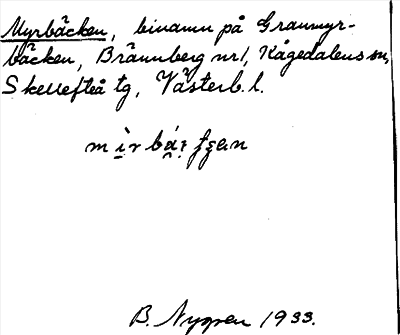 Myrbäcken, binamn på Granmyr-
bäcken, Brännberg nr 1, Kågedalens sn,
Skellefteå tg, Västerb. l.
B. Nygren 1933.